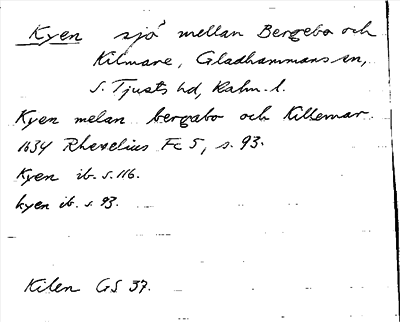 Kyen sjö mellan Bergebo och
Kilmare, Gladhammars sn,
S. Tjusts hd, Kalm. l.
Kyen melan bergabo och Killemar.
1634 Rhezelius Fc 5, s. 93.
Kyen ib. s. 116.
kyen ib. s. 93.
Kilen GS 37.